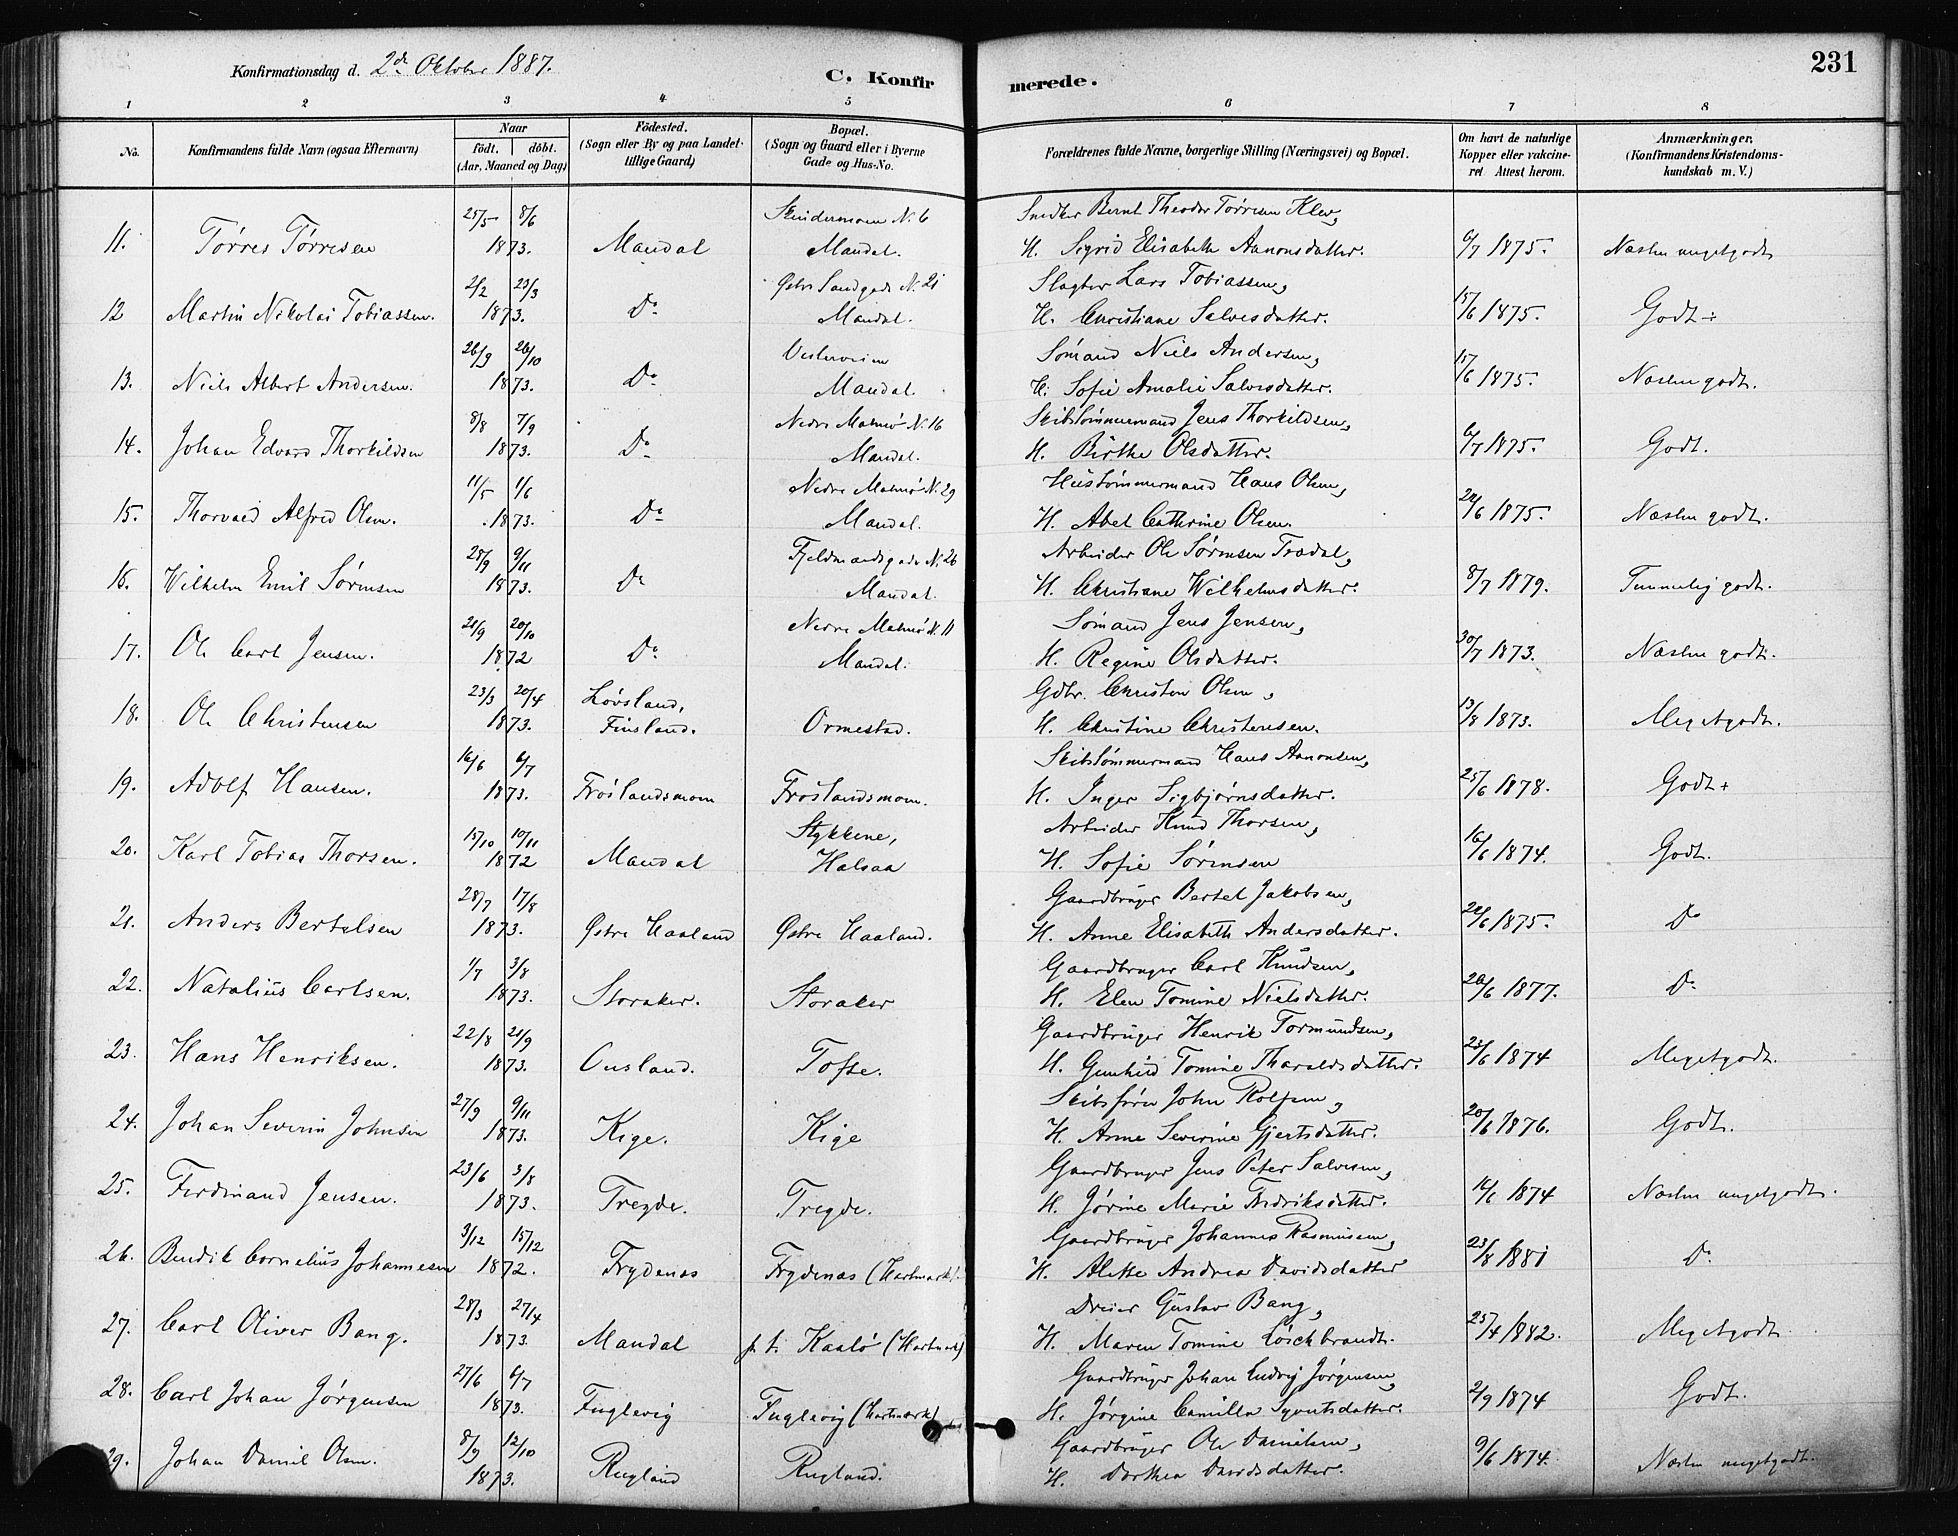 Konfirmationsdag d. 2den Oktober 1887.
C. Konfir
merede.
231
1 2 3 4 5 6 7 8
No.
Konfirmandens fulde Navn (ogsaa Efternavn)
Naar
født. døbt.
(Aar, Maaned og Dag)
Födested.
(Sogn eller By og paa Landet tillige Gaard)
Bopæl.
(Sogn og Gaard eller i Byerne Gade og Hus-No.
Forældrenes fulde Navne, borgerlige Stilling (Næringsvei) og Bopæl.
Om havt de naturlige Kopper eller vakcineret Attest herom.
Anmærkninger,
(Konfirmandens Kristendomskundskab m. V.)
25/5 8/6 Skindermoen N. 6 Snedker Bernt Theodor Tørresen Klev,
11. Tørres Tørresen 1873. Mandal Mandal. H. Sigrid Elisabeth Aanonsdatter. 6/7 1875. Næsten megetgodt
2/2 23/3 Østre Sandgade N. 21 Slagter Lars Tobiassen,
12 Martin Nikolai Tobiassen. 1873. Do Mandal. H. Christiane Salvesdatter. 15/6 1875. Godt ÷
26/9 26/10 Vesterveien Sømand Niels Andersen,
13. Niels Albert Andersen. 1873. Do Mandal. H. Sofie Amalie Salvesdatter. 15/6 1875. Næsten godt.
8/8 7/9 Nedre Malmø N. 16 Skibstømmermand Jens Thorkildsen,
14. Johan Edvard Thorkildsen 1873. Do Mandal. H. Birthe Olsdatter. 6/7 1875. Godt.
11/5 1/6 Nedre Malmø N. 29 Hustømmermand Hans Olsen,
15. Thorvald Alfred Olsen. 1873. Do Mandal. H. Abel Cathrine Olsen. 24/6 1875. Næsten godt.
28/9 9/11 Fjeldmandsgade N. 26 Arbeider Ole Sørensen Trædal,
16. Wilhelm Emil Sørensen 1873. Do Mandal. H. Christiane Wilhelmsdatter. 8/7 1879. Temmelig godt.
21/9 20/10 Nedre Malmø N. 11 Sømand Jens Jensen,
17. Ole Carl Jensen. 1872 Do Mandal. H. Regine Olsdatter. 30/7 1873. Næsten godt.
23/3 20/4 Løvsland, Gdbr. Christen Olsen,
18. Ole Christensen 1873. Finsland. Ormestad. H. Christine Christensen. 13/8 1873. Megetgodt.
16/6 6/7 Skibstømmermand Hans Aanonsen,
19. Adolf Hansen. 1873. Frøslandsmoen Frøslandsmoen. H. Inger Sigbjørnsdatter. 25/6 1878. Godt +
15/10 10/11 Stykkene, Arbeider Knud Thorsen,
20. Karl Tobias Thorsen. 1872 Mandal Halsaa H. Sofie Sørensen 16/6 1874. Godt.
28/7 17/8 Gaardbruger Bertel Jakobsen,
21. Anders Bertelsen 1873. Østre Haaland Østre Haaland. H. Anne Elisabeth Andersdatter. 22/6 1875. Do
1/7 3/8 Gaardbruger Carl Knudsen,
22. Natalius Carlsen. 1873. Storaker. Storaker H. Elen Tomine Nielsdatter. 20/6 1877. Do
22/8 21/9 Gaardbruger Henrik Tormundsen,
23. Hans Henriksen. 1873. Ousland. Tofte. H. Gunhild Tomine Tharaldsdatter. 23/6 1874 Megetgodt.
27/9 9/11 Skibsfører John Rolfsen,
24. Johan Severin Johnsen 1873. Kige. Kige H. Anne Severine Gjertsdatter. 20/6 1876. Godt.
23/6 3/8 Gaardbruger Jens Peter Salvesen,
25. Ferdinand Jensen. 1873. Tregde. Tregde. H. Jørine Marie Fredriksdatter. 16/6 1874 Næsten megetgodt.
3/12 15/12 Gaardbruger Johannes Rasmussen,
26. Bendik Cornelius Johannesen 1872. Frydenæs Frydenæs (Hartmark). H. Alette Andrea Davidsdatter 23/8 1881 Do
28/3 27/4 Dreier Gustav Bang,
27. Carl Oliver Bang. 1873. Mandal p. t. Kaalø (Hartmark) H. Maren Tomine Loschbrandt. 25/4 1882. Megetgodt.
27/6 6/7 Gaardbruger Johan Ludvig Jørgensen,
28. Carl Johan Jørgensen 1873. Fuglevig Fuglevig (Hartmark) H. Jørgine Camilla Syvertsdatter. 2/9 1874 Godt.
8/9 12/10 Gaardbruger Ole Danielsen,
29. Johan Daniel Olsen. 1873. Rugland Rugland. H. Dorthea Davidsdatter. 9/6 1874. Næsten megetgodt.